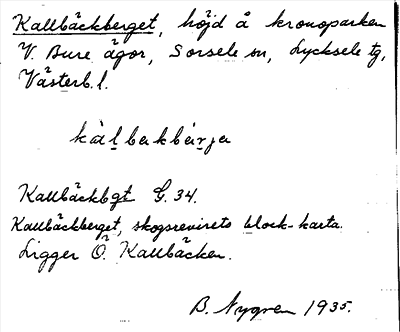 Kallbäckberget, höjd å kronoparken
V. Bure ägor, Sorsele sn, Lycksele tg,
Västerb. l.
kàl̥bakbàrja
Kallbäckbgt G. 34.
Kallbäckberget, skogsrevirets block-karta.
Ligger Ö. Kallbäcken.
B. Nygren 1935.